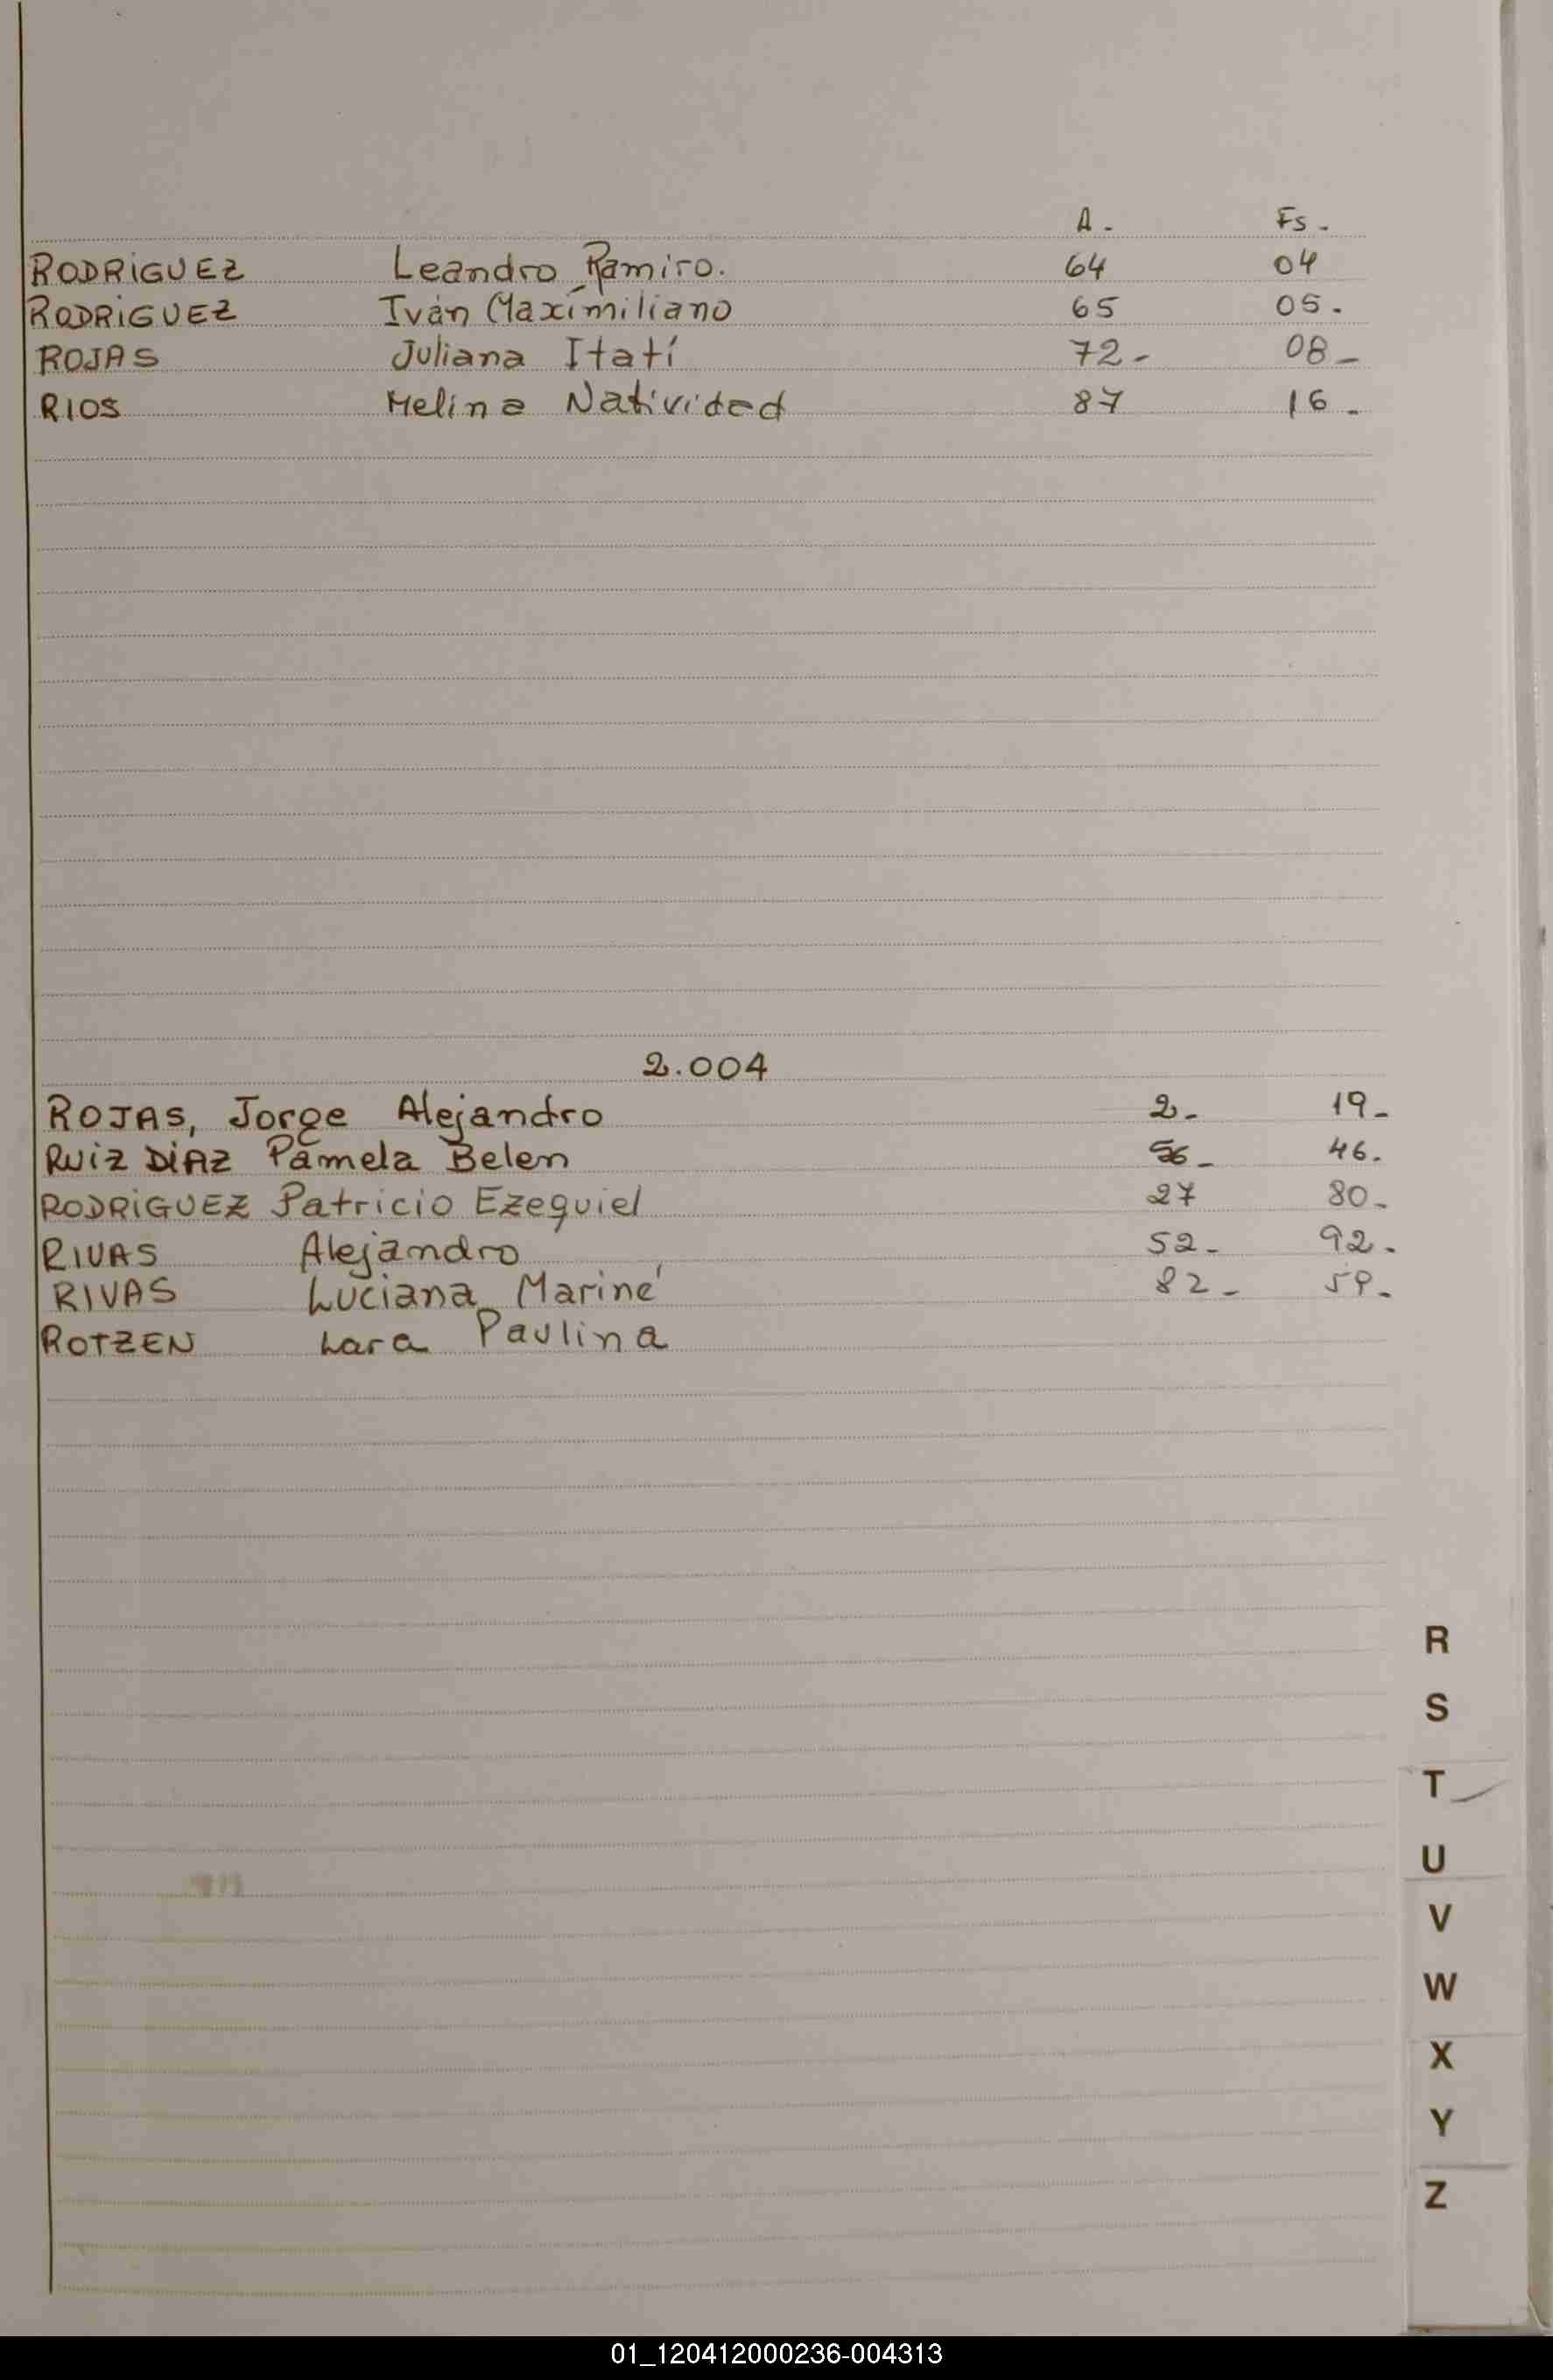 A. Fs.
RODRIGUEZ Leandro Ramiro. 64 04
RODRIGUEZ Iván Maximiliano 65 05.
ROJAS Juliana Itatí 72- 08-
RIOS Melina Natividad 87 16-
2.004
ROJAS, Jorge Alejandro 2- 19-
RUIZ DIAZ Pamela Belen 46.
RODRIGUEZ Patricio Ezequiel 27 80-
RIVAS Alejandro 52- 92-
RIVAS Luciana Mariné 82- 59-
ROTZEN Lara Paulina
R
S
T
U
V
W
X
Y
Z
01_120412000236-004313